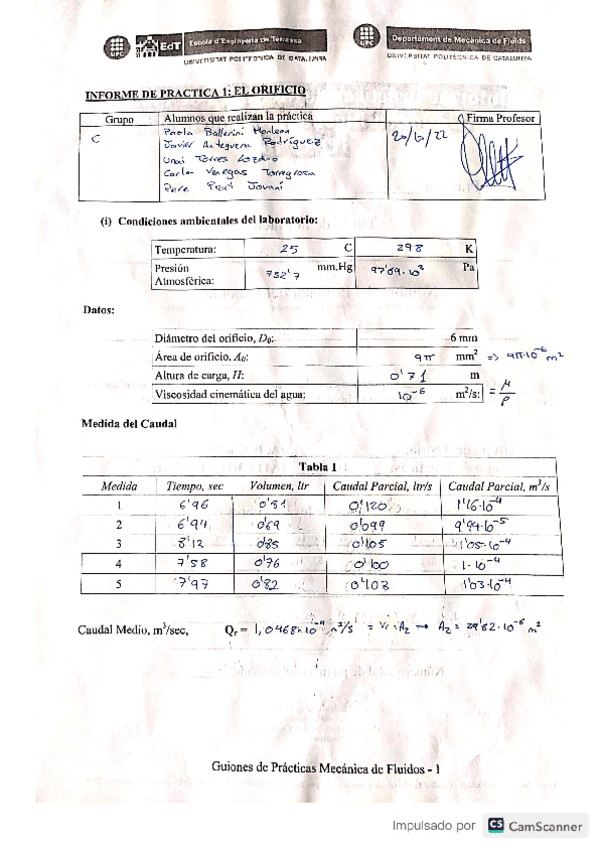 UPC EdT Escola d'Enginyeria de Terrassa
UNIVERSITAT POLITÈCNICA DE CATALUNYA
UPC Departament de Mecànica de Fluids
UNIVERSITAT POLITÈCNICA DE CATALUNYA
INFORME DE PRACTICA 1: EL ORIFICIO
Grupo Alumnos que realizan la práctica Firma Profesor
C Paola Ballerini Monleon 20/6/22
Javier Antequera Rodríguez
Unai Torres Lozano
Carla Venegas Torregrosa
Pere Prat Jovani
(i) Condiciones ambientales del laboratorio:
Temperatura: 25 C 298 K
Presión Atmosférica: 752'7 mm.Hg Pa
Datos:
Diámetro del orificio, D₀: 6 mm
Área de orificio, A₀: 9π mm² => 9π·10⁻⁶ m²
Altura de carga, H: 0'71 m
Viscosidad cinemática del agua: 10⁻⁶ m²/s: = μ/ρ
Medida del Caudal
Tabla 1
Medida Tiempo, sec Volumen, ltr Caudal Parcial, ltr/s Caudal Parcial, m³/s
1 6'96 0'81 0'120 1'16·10⁻⁴
2 6'94 0'69 0'099 9'94·10⁻⁵
3 8'12 0'85 0'105 1'05·10⁻⁴
4 7'58 0'76 0'100 1·10⁻⁴
5 7'97 0'82 0'103 1'03·10⁻⁴
Caudal Medio, m³/sec, Qr = 1,0468·10⁻⁴ m³/s = Vr·A₂ → A₂ = 29'82·10⁻⁶ m²
Guiones de Prácticas Mecánica de Fluidos - 1
Impulsado por CS CamScanner